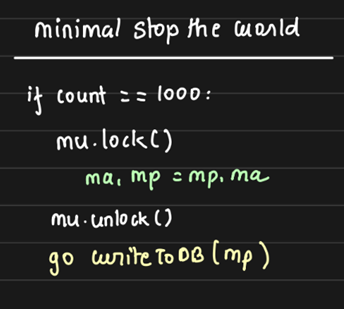 minimal stop the world
if count == 1000:
mu.lock()
ma, mp = mp, ma
mu.unlock()
go writeToDB(mp)